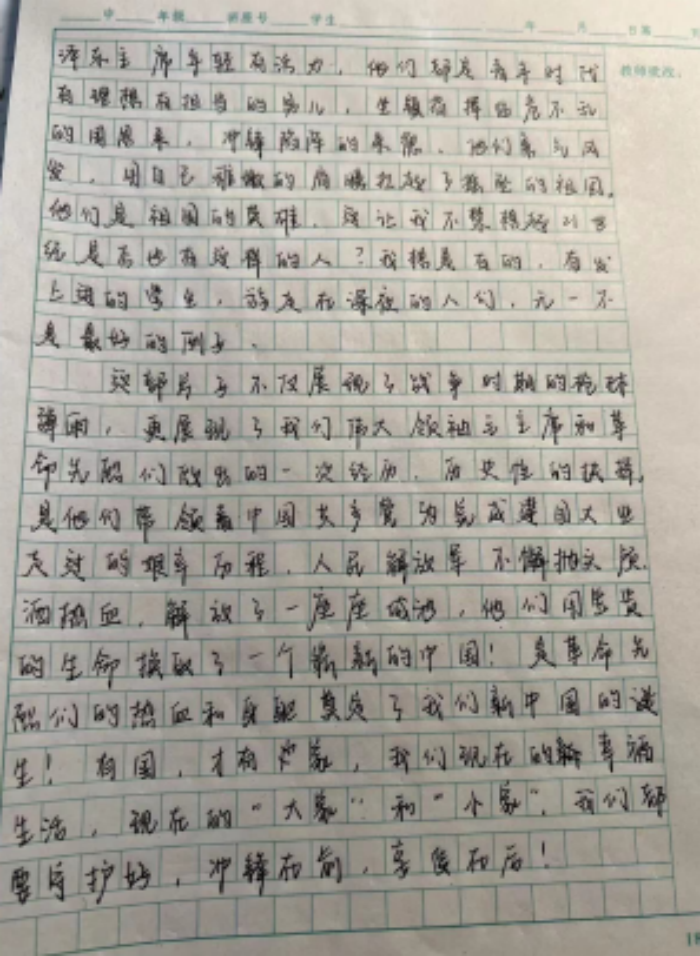 中 年级 班座号 学生 年 月 日第 页
教师批改：
泽东主席年轻有活力，他们都是青年时代
有理想有担当的男儿，坐镇指挥临危不乱
的周恩来，冲锋陷阵的朱德，他们意气风
发，用自己稚嫩的肩膀扛起了的祖国。
他们是祖国的英雄，这让我不禁想起21世
纪是否也有这样的人？我想是有的，奋发
上进的学生，奔走在深夜的人们，无一不
是最好的例子。
这部片子不仅展现了战争时期的枪林
弹雨，更展现了我们伟大领袖毛主席和革
命先烈们做出的一次经历，历史性的抉择，
是他们带领着中国共产党为完成建国大业
走过的艰辛历程，人民解放军不懈抛头颅，
洒热血，解放了一座座城池，他们用宝贵
的生命换取了一个崭新的中国！是革命先
烈们的热血和身躯奠定了我们新中国的诞
生！有国，才有家，我们现在的幸福
生活，现在的“大家”和“小家”，我们都
要守护好，冲锋在前，享受在后！
18